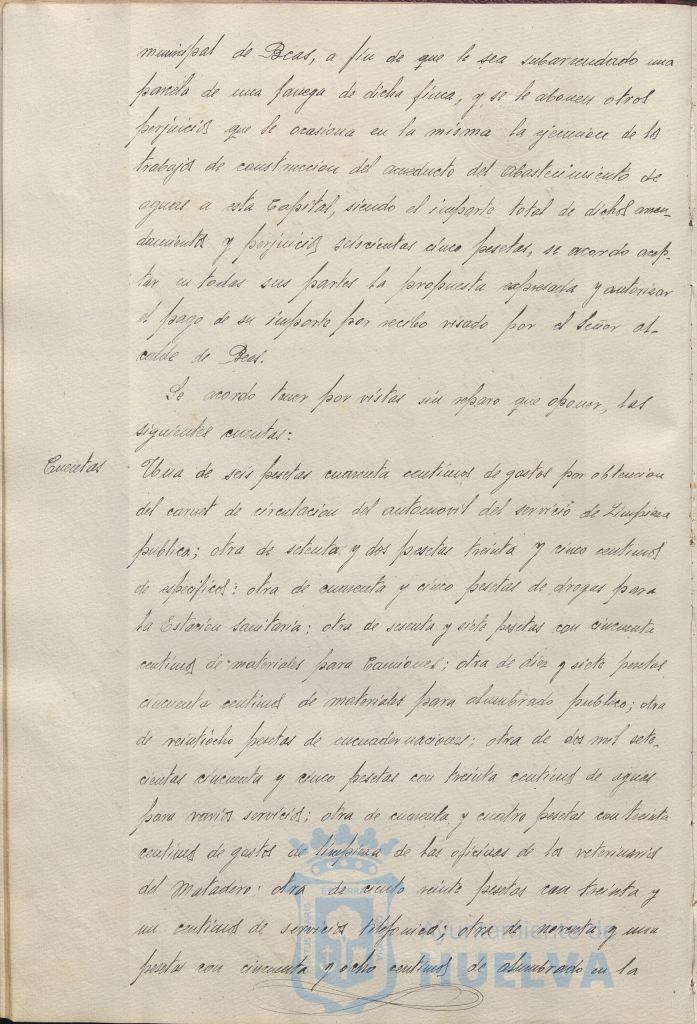 municipal de Beas, a fin de que le sea subarrendado una
parcela de una fanega de dicha finca, y se le abonen otros
perjuicios que le ocasiona en la misma la ejecucion de los
trabajos de construccion del acueducto del abastecimiento de
aguas a esta Capital, siendo el importe total de dichos arren-
damientos y perjuicios seiscientas cinco pesetas, se acordo acep-
tar en todas sus partes la propuesta expresada y autorizar
el pago de su importe por recibo visado por el Señor al-
calde de Beas.
Se acordo tener por vistas sin reparo que oponer, las
siguientes cuentas:
Cuentas
Una de seis pesetas cuarenta centimos de gastos por obtencion
del carnet de circulacion del automovil del servicio de Limpieza
publica; otra de setenta y dos pesetas treinta y cinco centimos
de especificos: otra de cuarenta y cinco pesetas de drogas para
la Estacion sanitaria; otra de sesenta y siete pesetas con cincuenta
centimos de materiales para Camiones; otra de diez y siete pesetas
cincuenta centimos de materiales para alumbrado publico; otra
de veintiocho pesetas de encuadernaciones; otra de dos mil sete-
cientas cincuenta y cinco pesetas con treinta centimos de aguas
para varios servicios; otra de cuarenta y cuatro pesetas con treinta
centimos de gastos de limpieza de las oficinas de los veterinarios
del Matadero: otra de ciento veinte pesetas con treinta y
un centimos de servicios telefonicos; otra de noventa y una
pesetas con cincuenta y ocho centimos de alumbrado en la
Ayuntamiento de
HUELVA